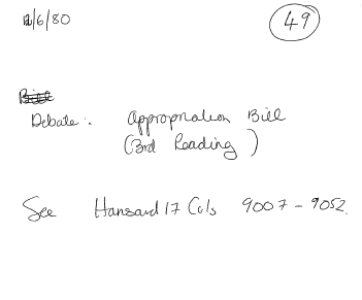 12/6/80
49
Bill
Debate: Appropriation Bill
(3rd Reading)
See Hansard 17 Cols 9007 - 9052.